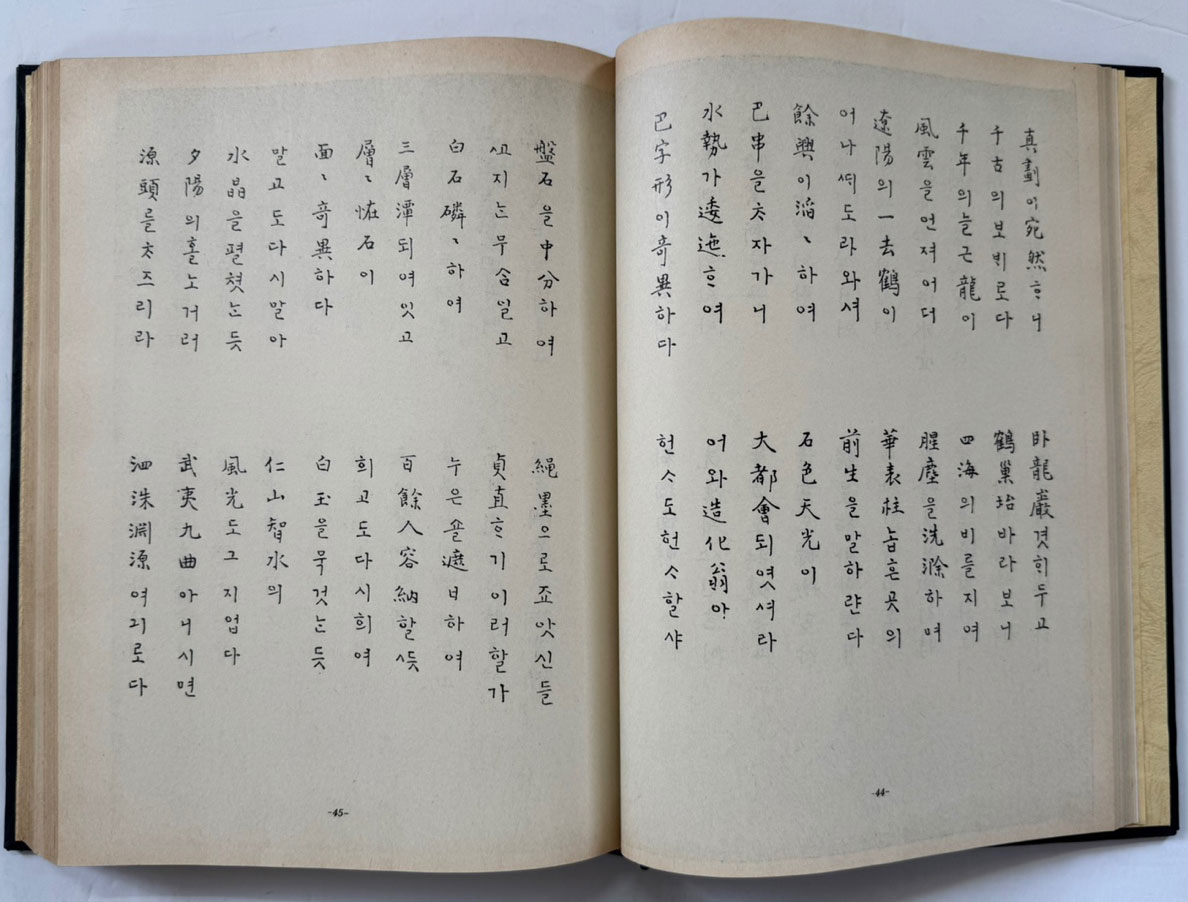 真劃이宛然ᄒᆞ니
千古의보ᄇᆡ로다
臥龍巖겻ᄒᆡ두고
鶴巢坮바라보니
千年의늘근龍이
風雲을언져어더
四海의비를지여
腥塵을洗滌하며
遼陽의一去鶴이
어나ᄯᅢ도라와셔
華表柱놉흔곳의
前生을말하랸다
餘興이滔〻하여
巴串을ᄎᆞ자가니
石色天光이
大都會되엿셔라
水勢가逶迤ᄒᆞ여
巴字形이奇異하다
어와造化翁아
헌ᄉᆞ도헌ᄉᆞ할샤
-44-
盤石을中分하여
지ᄂᆞᆫ무ᄉᆞᆷ일고
繩墨으로죠앗신들
貞直ᄒᆞ기이러할가
白石磷〻하여
三層潭되여잇고
누은하여
百餘人容納할ᄯᅳᆺ
層〻恠石이
面〻奇異하다
희고도다시희여
白玉을묵것ᄂᆞᆫ듯
말고도다시말아
水晶을펼쳣ᄂᆞᆫ듯
仁山智水의
風光도그지업다
夕陽의홀노거러
源頭를ᄎᆞᄌᆞ리라
武夷九曲아니시면
泗洙淵源여긔로다
-45-